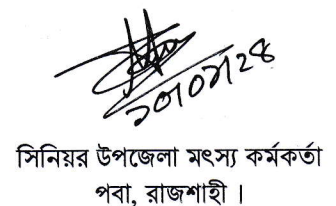 সিনিয়র উপজেলা মৎস্য কর্মকর্তা
পবা, রাজশাহী ।